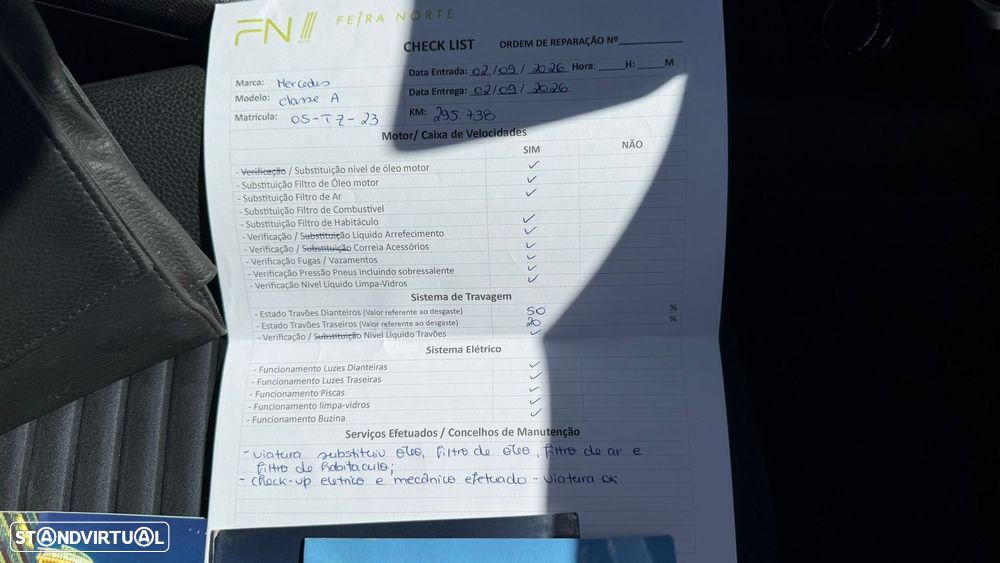 FN FEIRA NORTE
CHECK LIST ORDEM DE REPARAÇÃO Nº
Marca: Mercedes
Data Entrada: 02/09/2026 Hora: H: M
Modelo: classe A
Data Entrega: 02/09/2026
Matrícula: 05-TZ-23
KM: 295.738
Motor/ Caixa de Velocidades
SIM NÃO
- Verificação / Substituição nível de óleo motor ✓
- Substituição Filtro de Óleo motor ✓
- Substituição Filtro de Ar ✓
- Substituição Filtro de Combustível
- Substituição Filtro de Habitáculo ✓
- Verificação / Substituição Líquido Arrefecimento ✓
- Verificação / Substituição Correia Acessórios ✓
- Verificação Fugas / Vazamentos ✓
- Verificação Pressão Pneus incluindo sobressalente ✓
- Verificação Nível Líquido Limpa-Vidros ✓
Sistema de Travagem
- Estado Travões Dianteiros (Valor referente ao desgaste) 50 %
- Estado Travões Traseiros (Valor referente ao desgaste) 20 %
- Verificação / Substituição Nível Líquido Travões ✓
Sistema Elétrico
- Funcionamento Luzes Dianteiras ✓
- Funcionamento Luzes Traseiras ✓
- Funcionamento Piscas ✓
- Funcionamento limpa-vidros ✓
- Funcionamento Buzina ✓
Serviços Efetuados / Concelhos de Manutenção
- viatura substituiu óleo, filtro de óleo, filtro de ar e
filtro de habitaculo;
- check-up eletrico e mecânico efetuado - viatura ok
STANDVIRTUAL